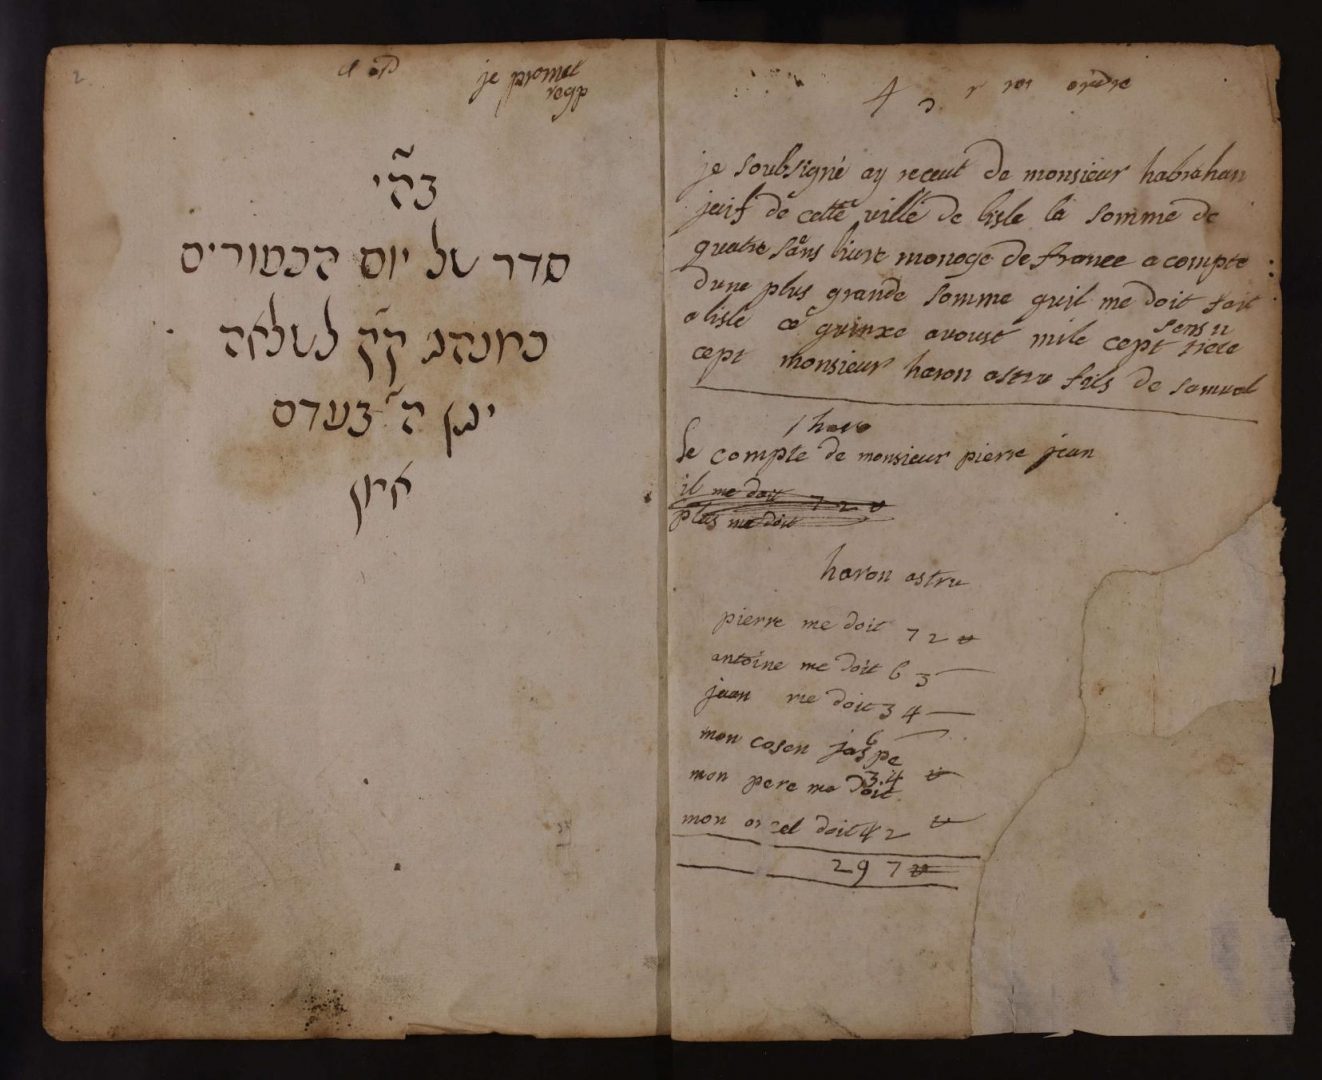 2
je promet
בה״י
סדר של יום הכפורים
כמנהג ק״ק לשלאה
יגן ה׳ בעדם
אמן
4 ordre
je soubsigné ay receut de monsieur habrahan
juif de cette ville de lisle la somme de
quatre sans livre monoge de france a compte
dune plus grande somme quil me doit fait
a lisle ce quinxe avoust mile cept
cept monsieur haron astru fils de samuel
le compte de monsieur pierre jean
il me doit 72
plus me doit
haron astru
pierre me doit 72
antoine me doit 63
jean me doit 34
mon cosen
mon pere me doit 34
mon doit 42
297